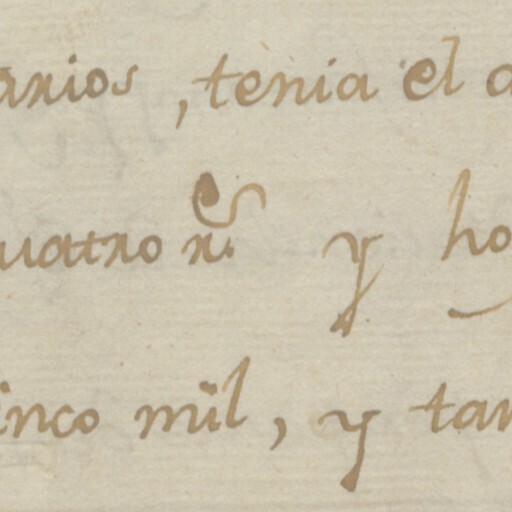 arios, tenia el a
uatro r.^s y ho
inco mil, y tan